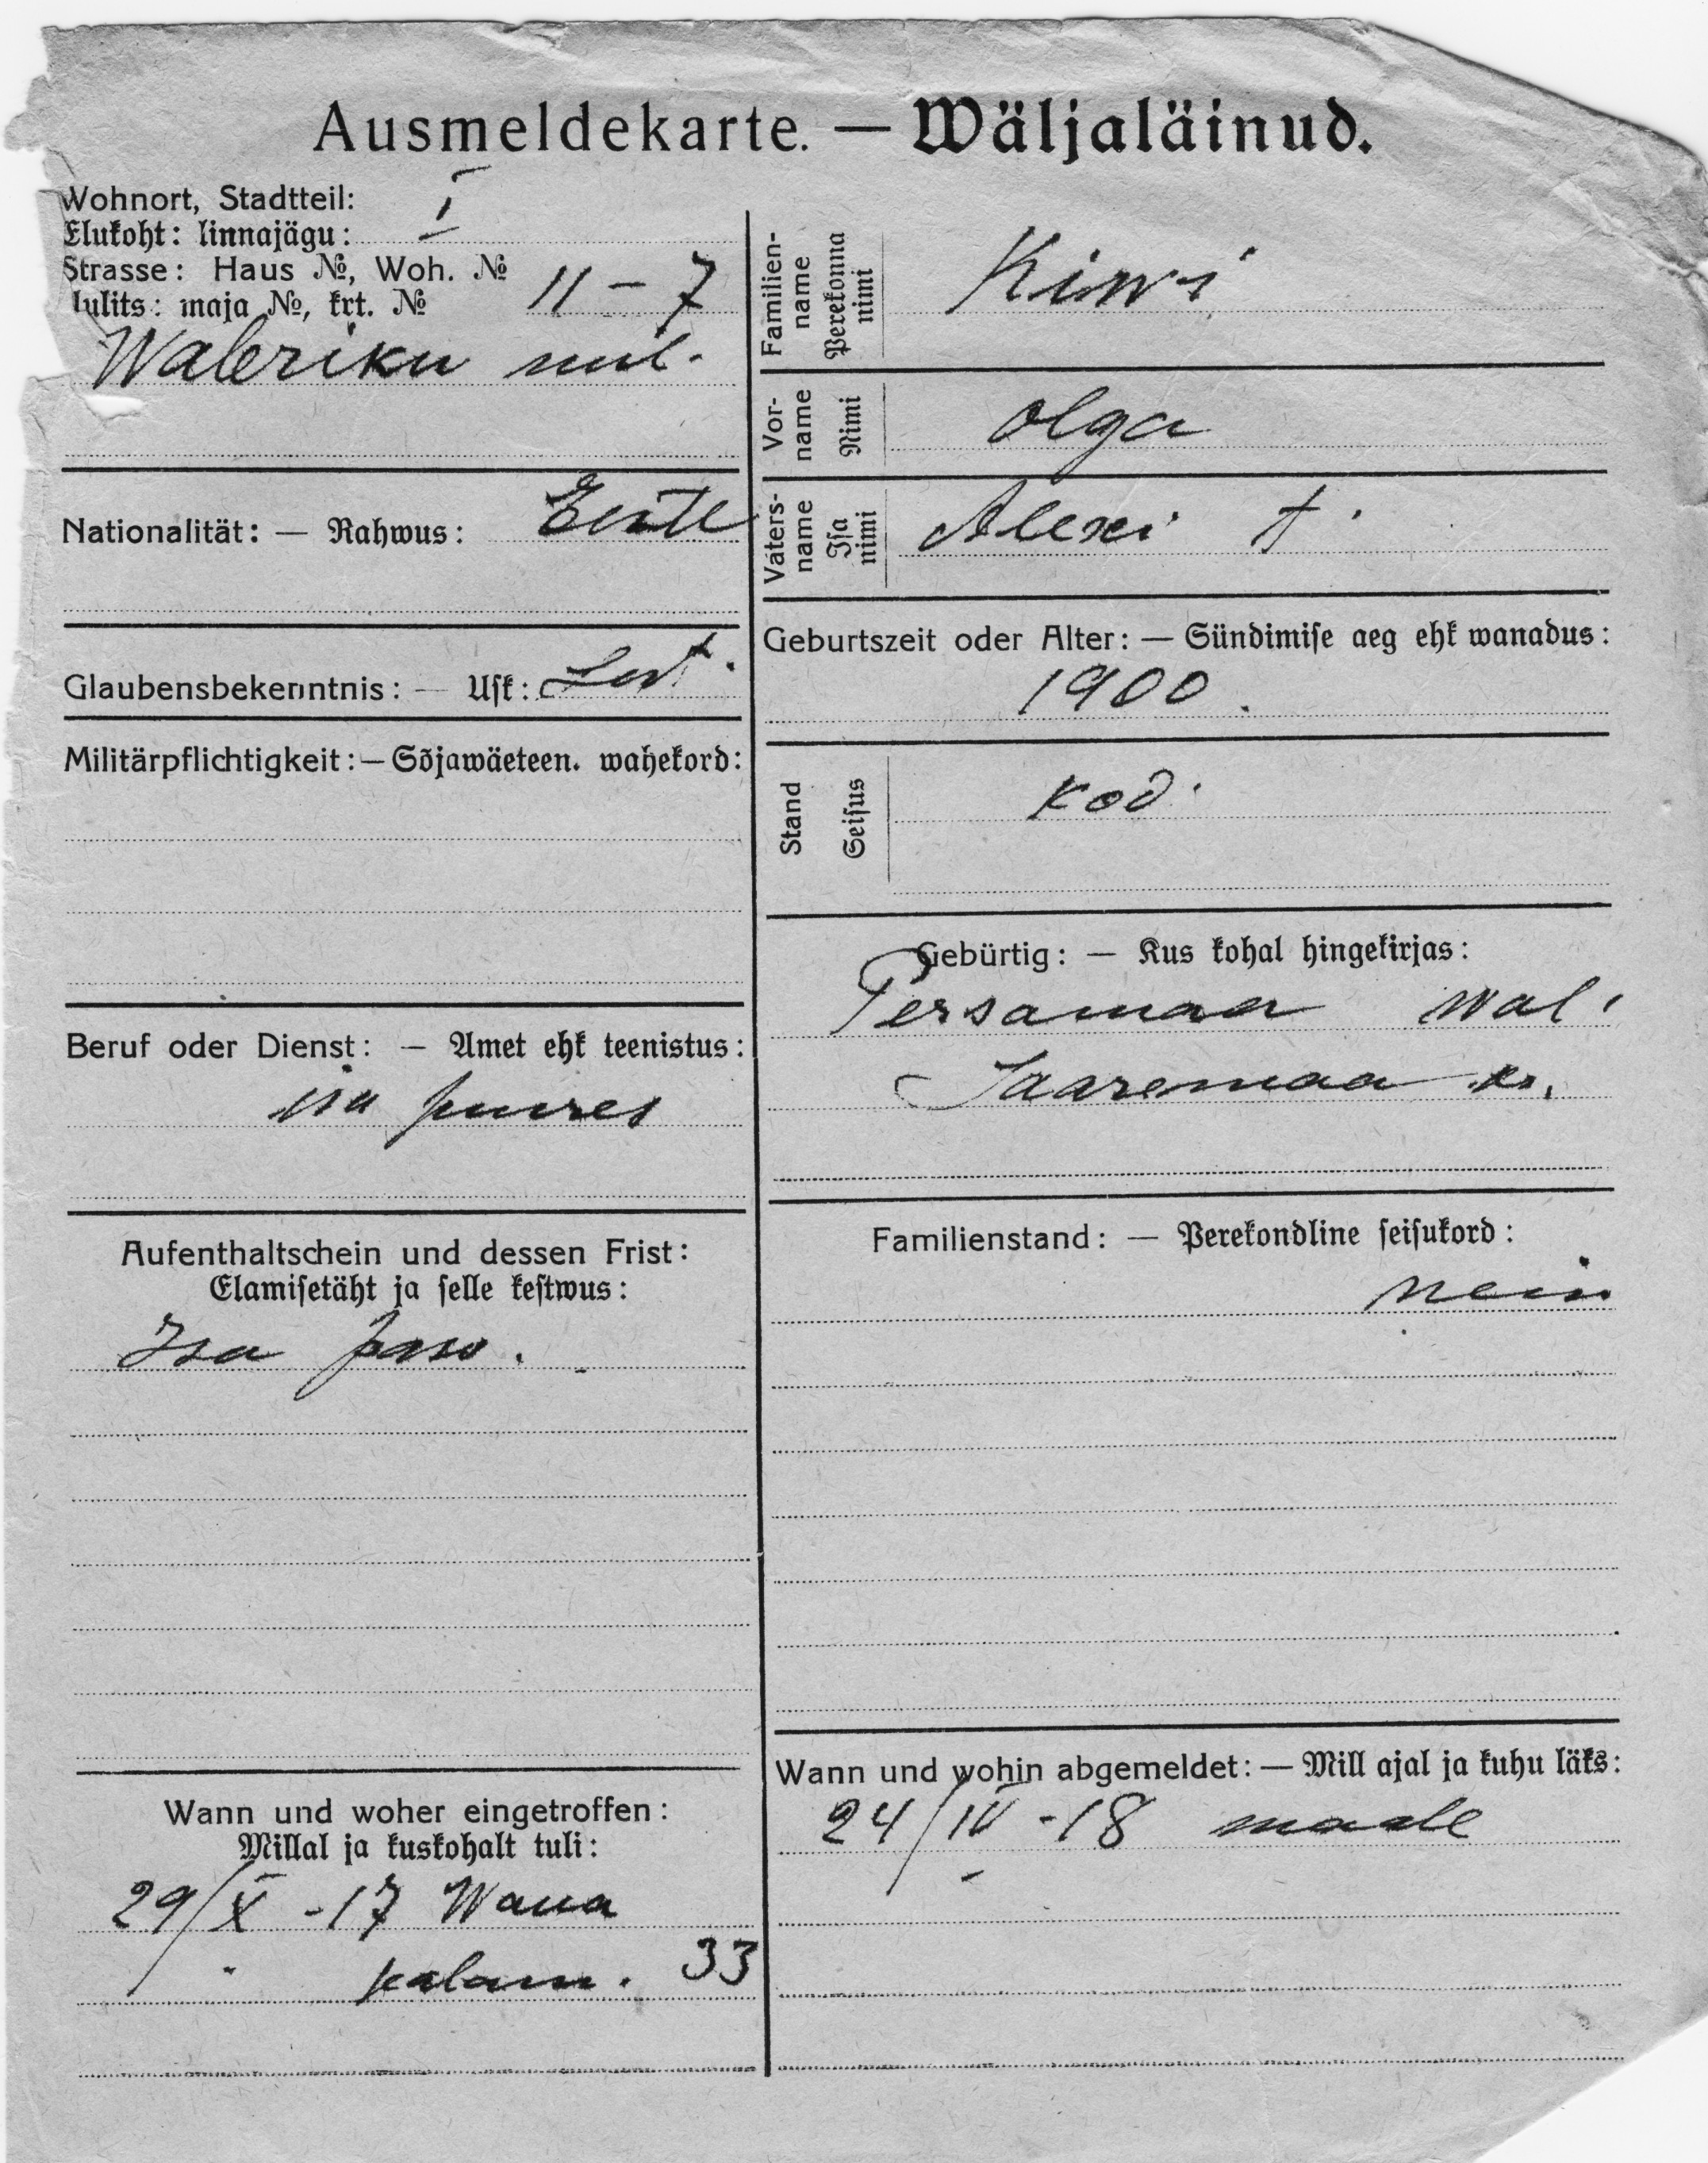 Ausmeldekarte. — Wäljaläinud.
Wohnort, Stadtteil:
Elukoht: linnajägu: I
Strasse: Haus №, Woh. №
Uulits: maja №, krt. № 11 - 7
Waleriku uul.
Nationalität: — Rahwus: Eestl
Glaubensbekenntnis: — Usk: Lut.
Militärpflichtigkeit: — Sõjawäeteen. wahekord:
Beruf oder Dienst: — Amet ehk teenistus:
isa juures
Aufenthaltschein und dessen Frist:
Elamisetäht ja selle kestwus:
Isa pass.
Wann und woher eingetroffen:
Millal ja kuskohalt tuli:
29/X -17 Wana
kalam. 33
Familien-name Perekonna nimi Kiwi
Vor-name Nimi Olga
Vaters-name Isa nimi Alexi t.
Geburtszeit oder Alter: — Sündimise aeg ehk wanadus:
1900.
Stand Seisus kod.
Gebürtig: — Kus kohal hingekirjas:
Persamaa wal.
Saaremaa kr.
Familienstand: — Perekondline seisukord:
nein
Wann und wohin abgemeldet: — Mill ajal ja kuhu läks:
24/IV -18 maale